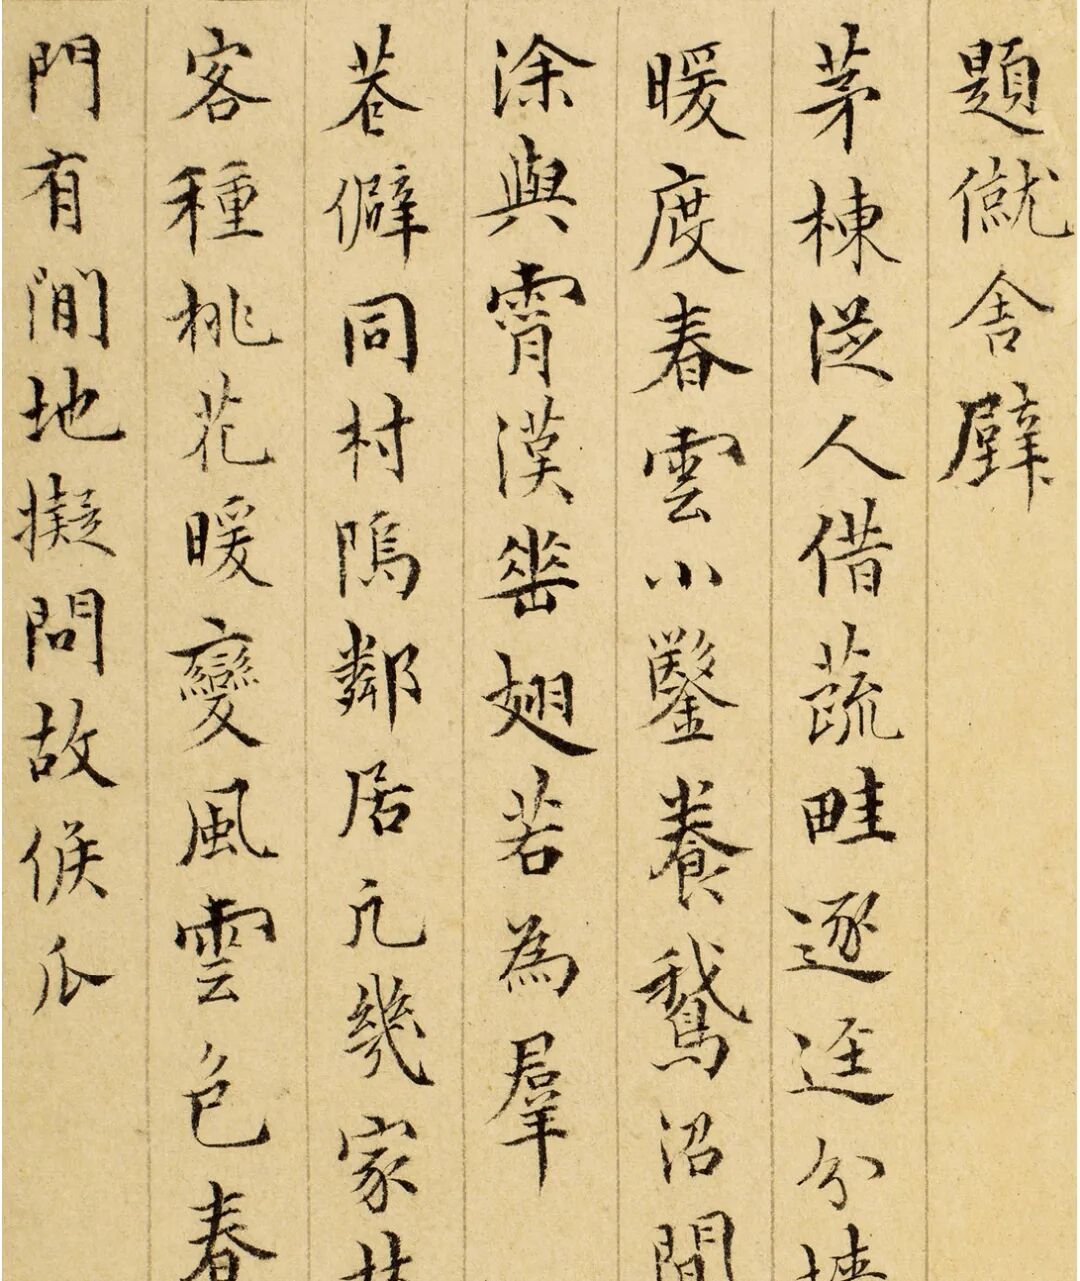 題僦舍壁
茅棟從人借蔬畦逐逕分
暖度春雲小鑿養鵝沼間
涂與霄漢垂翅若為羣
巷僻同村隖鄰居凢幾家
客種桃花暖變風雲色春
門有閒地擬問故侯瓜